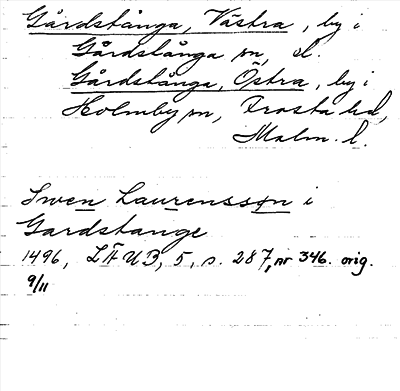 Gårdstånga, Västra, by i
Gårdstånga sn, d.
Gårdstånga, Östra, by i
Holmby sn, Frosta hd,
Malm. l.
Swen Laurensson i
Gardstange
1496, LÄUB, 5, s. 287, nr 346. orig.
9/11